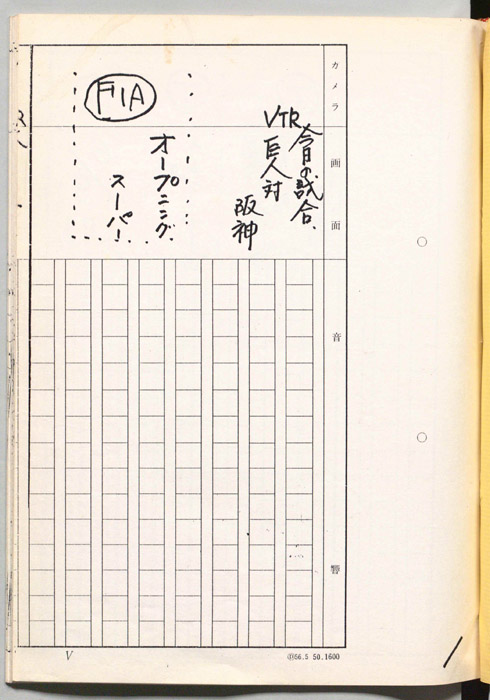 カメラ
画面
音
響
今日の試合、
VTR 巨人対
阪神
オープニング
スーパー
F1A
V
56.5 50.1600